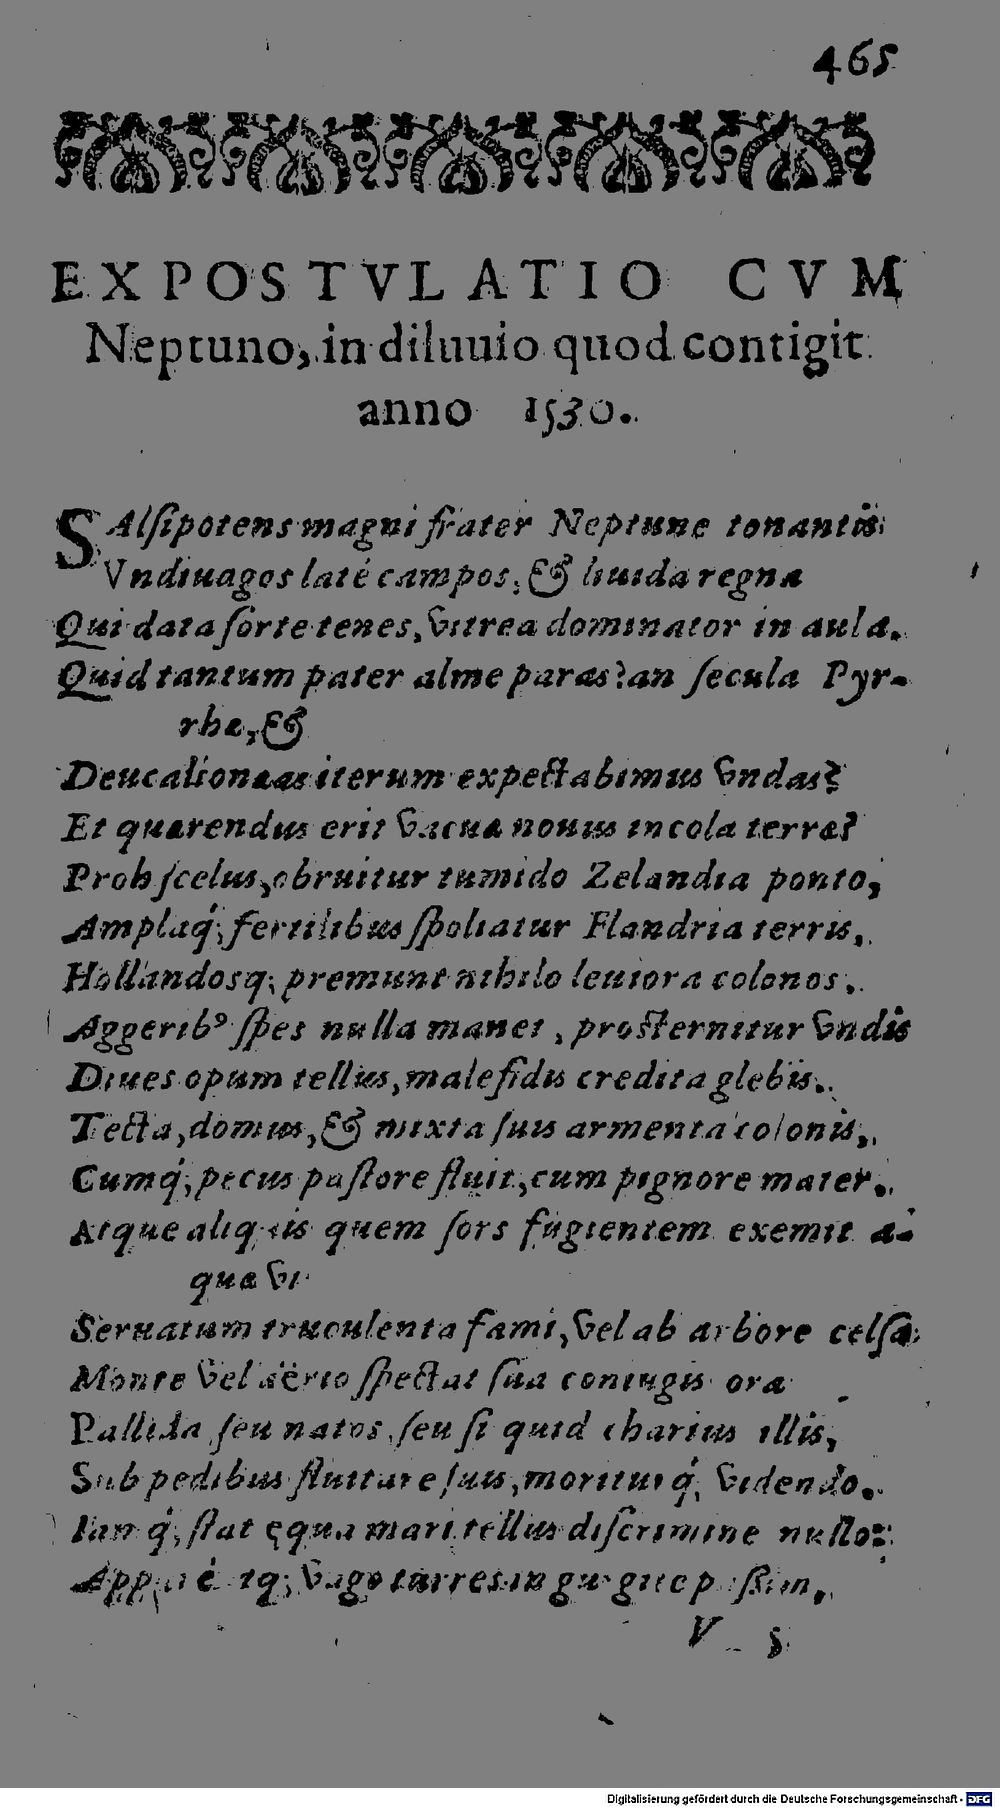 465
EXPOSTVLATIO CVM
Neptuno, in diluuio quod contigit
anno 1530.
SAlsipotens magni frater Neptune tonantis
Vndiuagos latè campos, & liuida regna
Qui data sorte tenes, vitrea dominator in aula.
Quid tantum pater alme paras? an secula Pyr-
rhæ, &
Deucalionæas iterum expectabimus vndas?
Et quærendus erit vacuæ nouus incola terræ?
Proh scelus, obruitur tumido Zelandia ponto,
Amplaq́; fertilibus spoliatur Flandria terris,
Hollandosq; premunt nihilo leuiora colonos.
Aggerib⁹ spes nulla manet, prosternitur vndis
Diues opum tellus, malefidis credita glebis.
Tecta, domus, & mixta suis armenta colonis,
Cumq́; pecus pastore fluit, cum pignore mater.
Atque aliquis quem sors fugientem exemit a-
quæ vt
Seruatum truculenta fami, vel ab arbore celsa
Monte vel aërio spectat sua coniugis ora
Pallida, seu natos, seu si quid charius illis,
Sub pedibus fluitare suis, moriturq́; videndo.
Iamq́; stat ęqua mari tellus discrimine nullo:
vago turres in gurgite
V 5
Digitalisierung gefördert durch die Deutsche Forschungsgemeinschaft - DFG